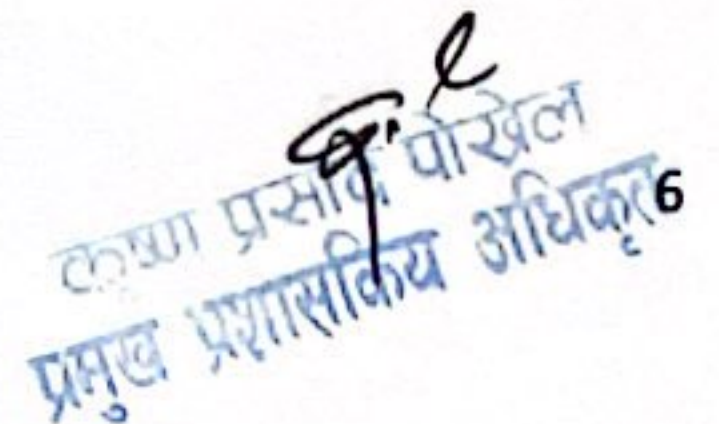 कृष्ण प्रसाद पोखेल
प्रमुख प्रशासकिय अधिकृत
6